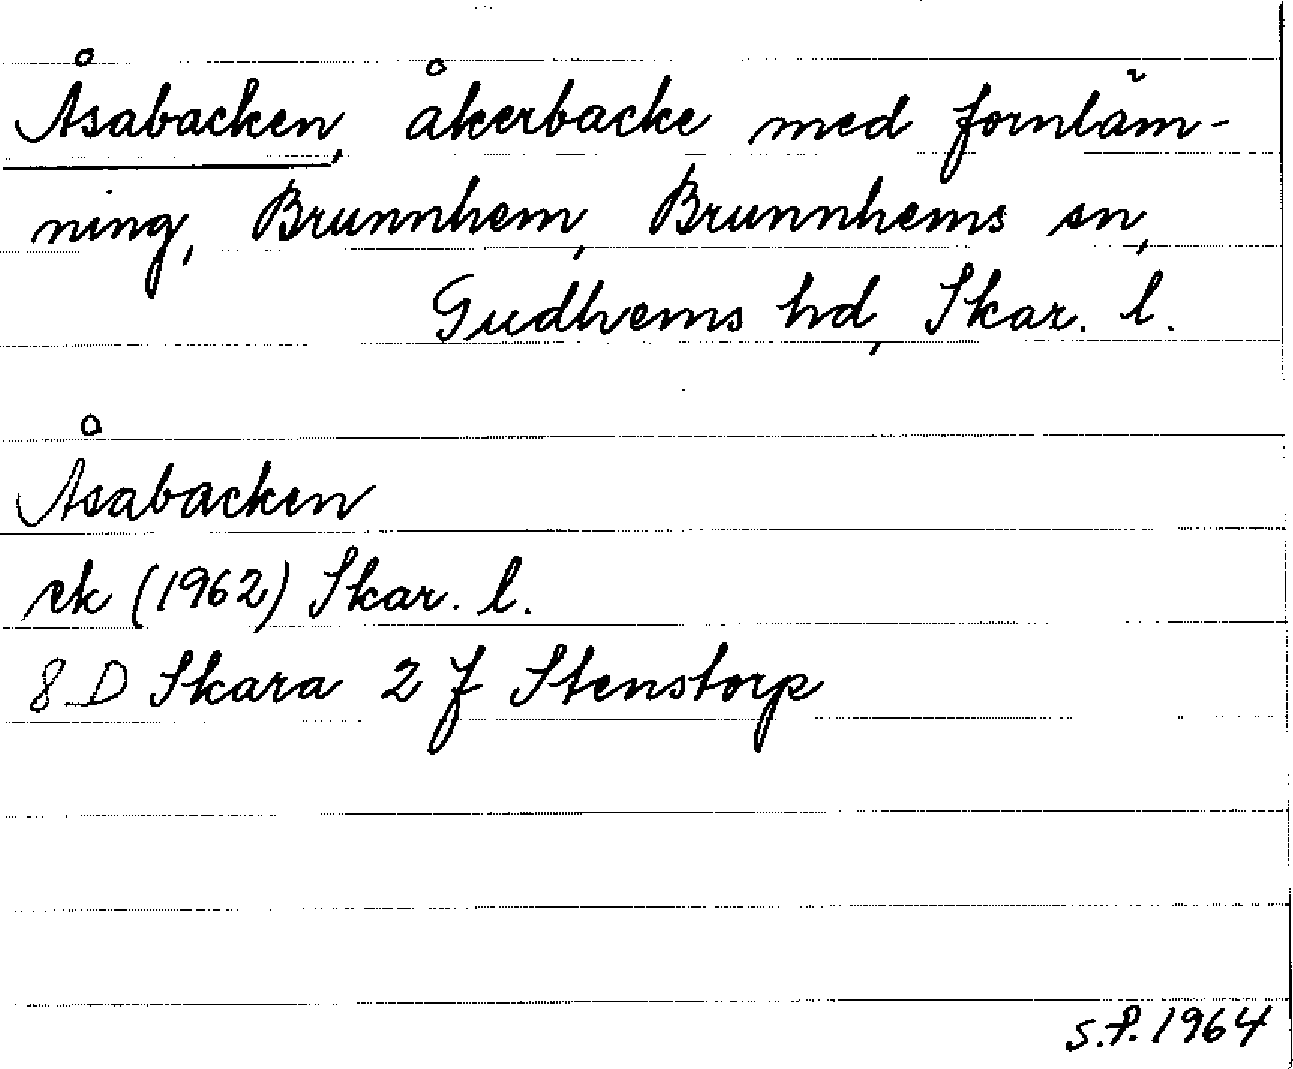 Åsabacken, åkerbacke med fornläm-
ning, Brunnhem, Brunnhems sn,
Gudhems hd, Skar. l.
Åsabacken
ek (1962) Skar. l.
8 D Skara 2 f Stenstorp
S.P. 1964